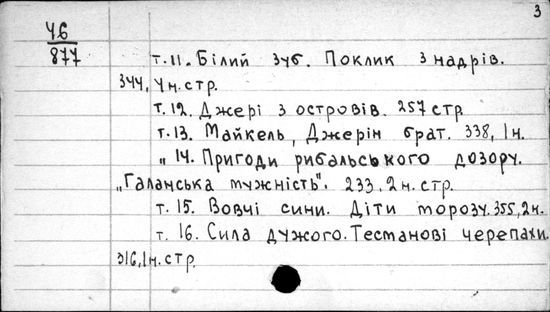 3
Чб
877
т.11. Білий зуб. Поклик з надрів.
344, 4 н.стр.
т.12. Джері з островів. 257 стр
т.13. Майкель, Джерін брат. 338, 1 н.
„ 14. Пригоди рибальського дозору.
„Галанська мужність". 233. 2 н. стр.
т. 15. Вовчі сини. Діти морозу. 355, 2 н.
т. 16. Сила дужого. Тесманові черепахи.
316, 1 н. стр.